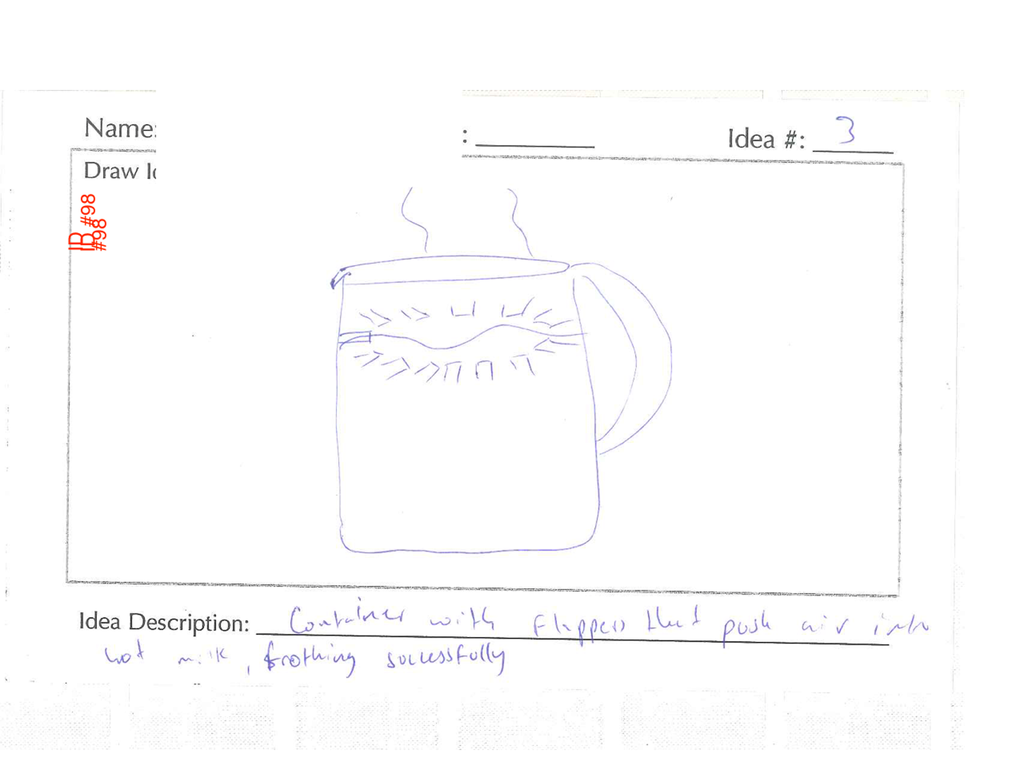 Name: : ____ Idea #: 3
Draw Id
JB #98
#98
Idea Description: Container with flippers that push air into
hot milk, frothing successfully